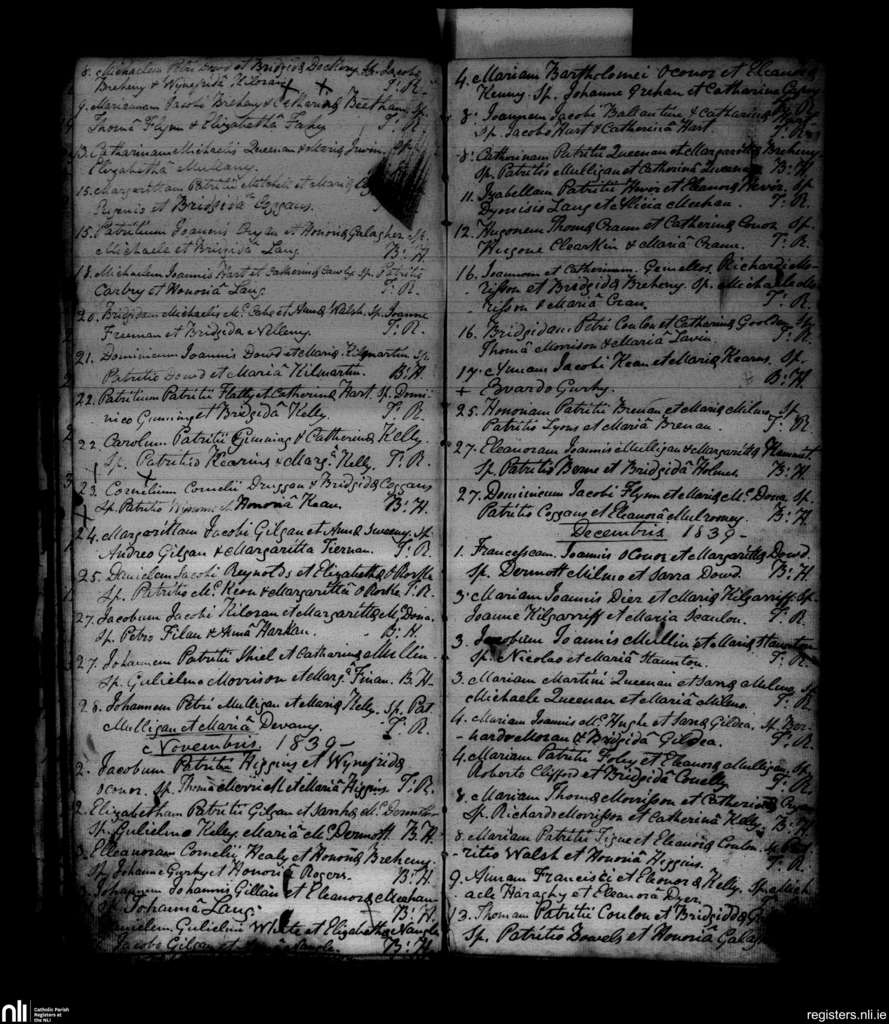 8. Michaelem Petri Dowd et Bridgidæ Dockery Sp. Jacobo
Breheny & Wynefridâ Kiloran T: R.
9. Mariannam Jacobi Breheny & Catherinæ Beethan Sp.
Thomâ Flynn & Elizabethâ Fahy T: R.
13. Catharinam Michaelis Queenan & Mariæ Irwin Sp.
Elizabethâ Mullany.
15. Margarittam Patritii Mitchell et Mariæ
et Bridgidâ Coggans.
15. Patritium Joannis Cryan et Honoriæ Galagher Sp.
Michaele et Bridgidâ Lang B: H.
18. Michaelem Joannis Hart et Catherinæ Sp. Patritio
Carbry et Honoriâ Lang T: R.
20. Bridgidam Michaelis Mc Cabe et Annæ Walsh. Sp. Joanne
Freeman et Bridgidâ T: R.
21. Dominicum Joannis Dowd et Mariæ Kilmartin Sp
Patritio Dowd et Mariâ Kilmartin. B: H.
22. Patritium Patritii Flatly et Catherinæ Hart. Sp. Domi
nico Gunning et Bridgidâ Kelly. T: R.
22. Carolum Patritii Gunning & Catherinæ Kelly.
Sp. Patritio Kearins & Marg.a Kelly. T: R.
23. Cornelium Cornelii Druggan & Bridgidæ Coggans
Sp. Patritio et Honoriâ Kean B: H.
24. Margarittam Jacobi Gilgan et Annæ Sweeny. Sp.
Andreo Gilgan & Margarittâ Tiernan. T: R.
25. Danielem Jacobi Reynolds et Elizabethæ O Rorke
Sp. Patritio Mc Keon & Margarittâ O Rorke T: R.
27. Jacobum Jacobi Kiloran et Margarittæ Mc Dona.
Sp. Petro Filan & Annâ Harkan. B: H.
27. Johannem Patritii Shiel et Catharinæ Mullin.
Sp. Gulielmo Morrison et Marg.a Finan. B. H.
28. Johannem Petri Mulligan et Mariæ Kelly. Sp. Pat
Mulligan et Mariâ Devany. T: R.
Novembris 1839 -
2. Jacobum Patritii Higgins et Wynefridæ
Oconor. Sp. Thomâ et Mariâ Higgins T: R.
2. Elizabetham Patritii Gilgan et Sarahæ Mc
Sp. Gulielmo Kelly. Mariâ Mc Dermott B. H.
Elleanoram Cornelii Healy et Honoriæ Breheny.
Sp. Johanne Gurhy et Honoriâ Rogers. B: H.
Johannem Johannis Gillan et Eleanoræ Meehan
Sp. Johannâ Lang. B: H.
Danielem Gulielmi White et Elizabethæ Nangle
Jacobo Gilgan et B: H.
4. Mariam Bartholomei Oconor et Eleanoræ
Kenny. Sp. Johanne et Catherinâ
8. Joannem Jacobi Ballantine & Catharinæ Hart
Sp. Jacobo Hart & Catherinâ Hart. T: R.
8. Catherinam Patritii Queenan et Margarittæ Breheny
Sp. Patritio Mulligan et Catherinâ Queenan B: H.
11. Izabellam Patritii Nevin et Eleanoræ Nevin. Sp.
Dyonisio Lang et Aliciâ Meehan. T: R.
12. Hugonem Thomæ Crann et Catherinæ Conor Sp.
Hugone Clearkin & Mariâ Crann. T: R.
16. Joannem et Catherinam. Gemellos. Richardi Mo-
rrisson et Bridgidæ Breheny. Sp. Michaele Mo
rrisson & Mariâ Cran. T: R.
16. Bridgidam. Petri Conlon et Catharinæ Goolden Sp
Thomâ Morrison & Mariâ Lavin. T: R.
17. Annam Jacobi Kean et Mariæ Kearns. Sp.
Edvardo Gurhy. B: H.
25. Honoriam Patritii Brenan et Mariæ Milmo Sp
Patritio Lyons et Mariâ Brenan. T: R
27. Eleanoram Joannis Mulligan & Margarittæ
Sp. Patritio Benne et Bridgidâ Holmes B: H.
27. Dominicum Jacobi Flynn et Mariæ Mc Dona Sp.
Patritio Coggans et Eleanorâ Mulrooney. B: H.
Decembris 1839 -
1. Francescam. Joannis O Conor et Margarittæ Dowd.
Sp. Dermott Milmo et Sarra Dowd. B: H.
3. Mariam Joannis Dier et Mariæ Kilgarriff. Sp.
Joanne Kilgarriff et Maria Scanlon. T: R.
3. Jacobum Joannis Mullin et Mariæ Staunton
Sp. Nicolao et Mariâ Staunton. T: R.
3. Mariam Martini Queenan et Saræ Milmo Sp
Michaele Queenan et Mariâ Milmo. T: R.
4. Mariam Joannis Mc Hughe et Saræ Gildea. Sp. Ber-
nardo Moran & Bridgidâ Gildea. T: R.
4. Mariam Patritii Foley et Eleanoræ Mulligan Sp.
Roberto Clifford et Bridgidâ Connelly. T: R.
8. Mariam Thomæ Morrisson et Catherinæ
Sp. Richardo Morrisson et Catherinâ Kelly. B: H.
8. Mariam Patritii Tigue et Eleanoræ Conlon. Sp. Pat
-ritio Walsh et Honoriâ Higgins. T: R.
9. Annam Francisci et Eleonoræ Kelly. Sp. Mich
aele Haraghy et Eleanorâ Dyer.
12. Thomam Patritii Conlon et Bridgidæ
Sp. Patritio Dowel et Honoriâ
nli
Catholic Parish
Registers at
the NLI
registers.nli.ie